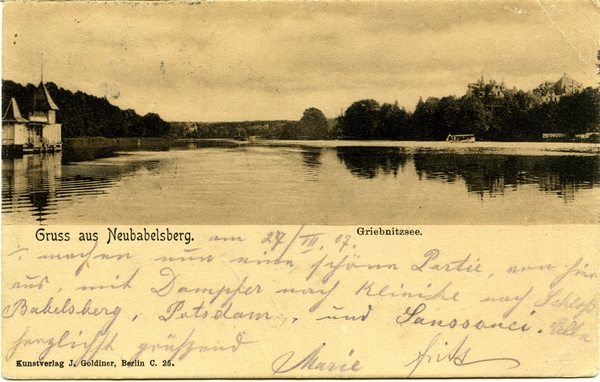 Gruss aus Neubabelsberg.
Griebnitzsee.
am 27/III. 07.
machen nun eine schöne Partie, von hier
aus, mit Dampfer nach Klinicke nach Schloß
Babelsberg, Potsdam, und Sanssouci.
herzlichst grüßend Marie Fritz
Kunstverlag J. Goldiner, Berlin C. 25.